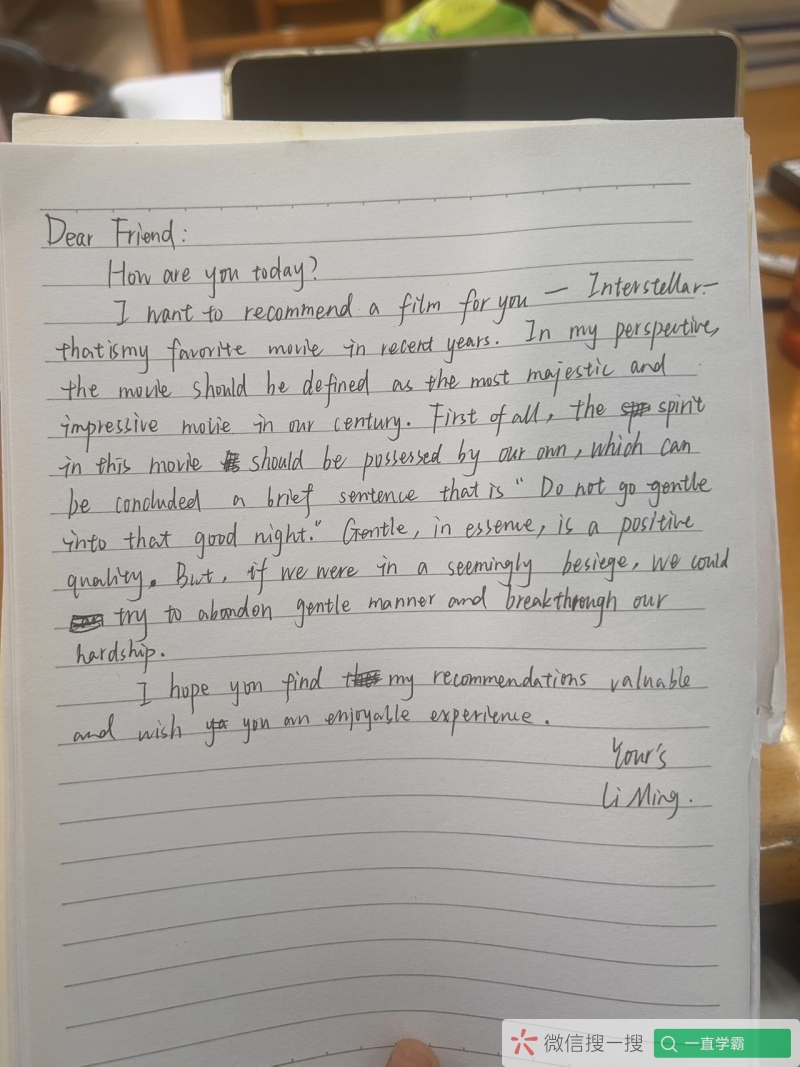 Dear Friend:
How are you today?
I want to recommend a film for you — Interstellar —
that is my favorite movie in recent years. In my perspective,
the movie should be defined as the most majestic and
impressive movie in our century. First of all, the spirit
in this movie should be possessed by our own, which can
be concluded a brief sentence that is "Do not go gentle
into that good night." Gentle, in essence, is a positive
quality. But, if we were in a seemingly besiege, we could
try to abandon gentle manner and break through our
hardship.
I hope you find my recommendations valuable
and wish you an enjoyable experience.
Your's
Li Ming.
微信搜一搜
一直学霸